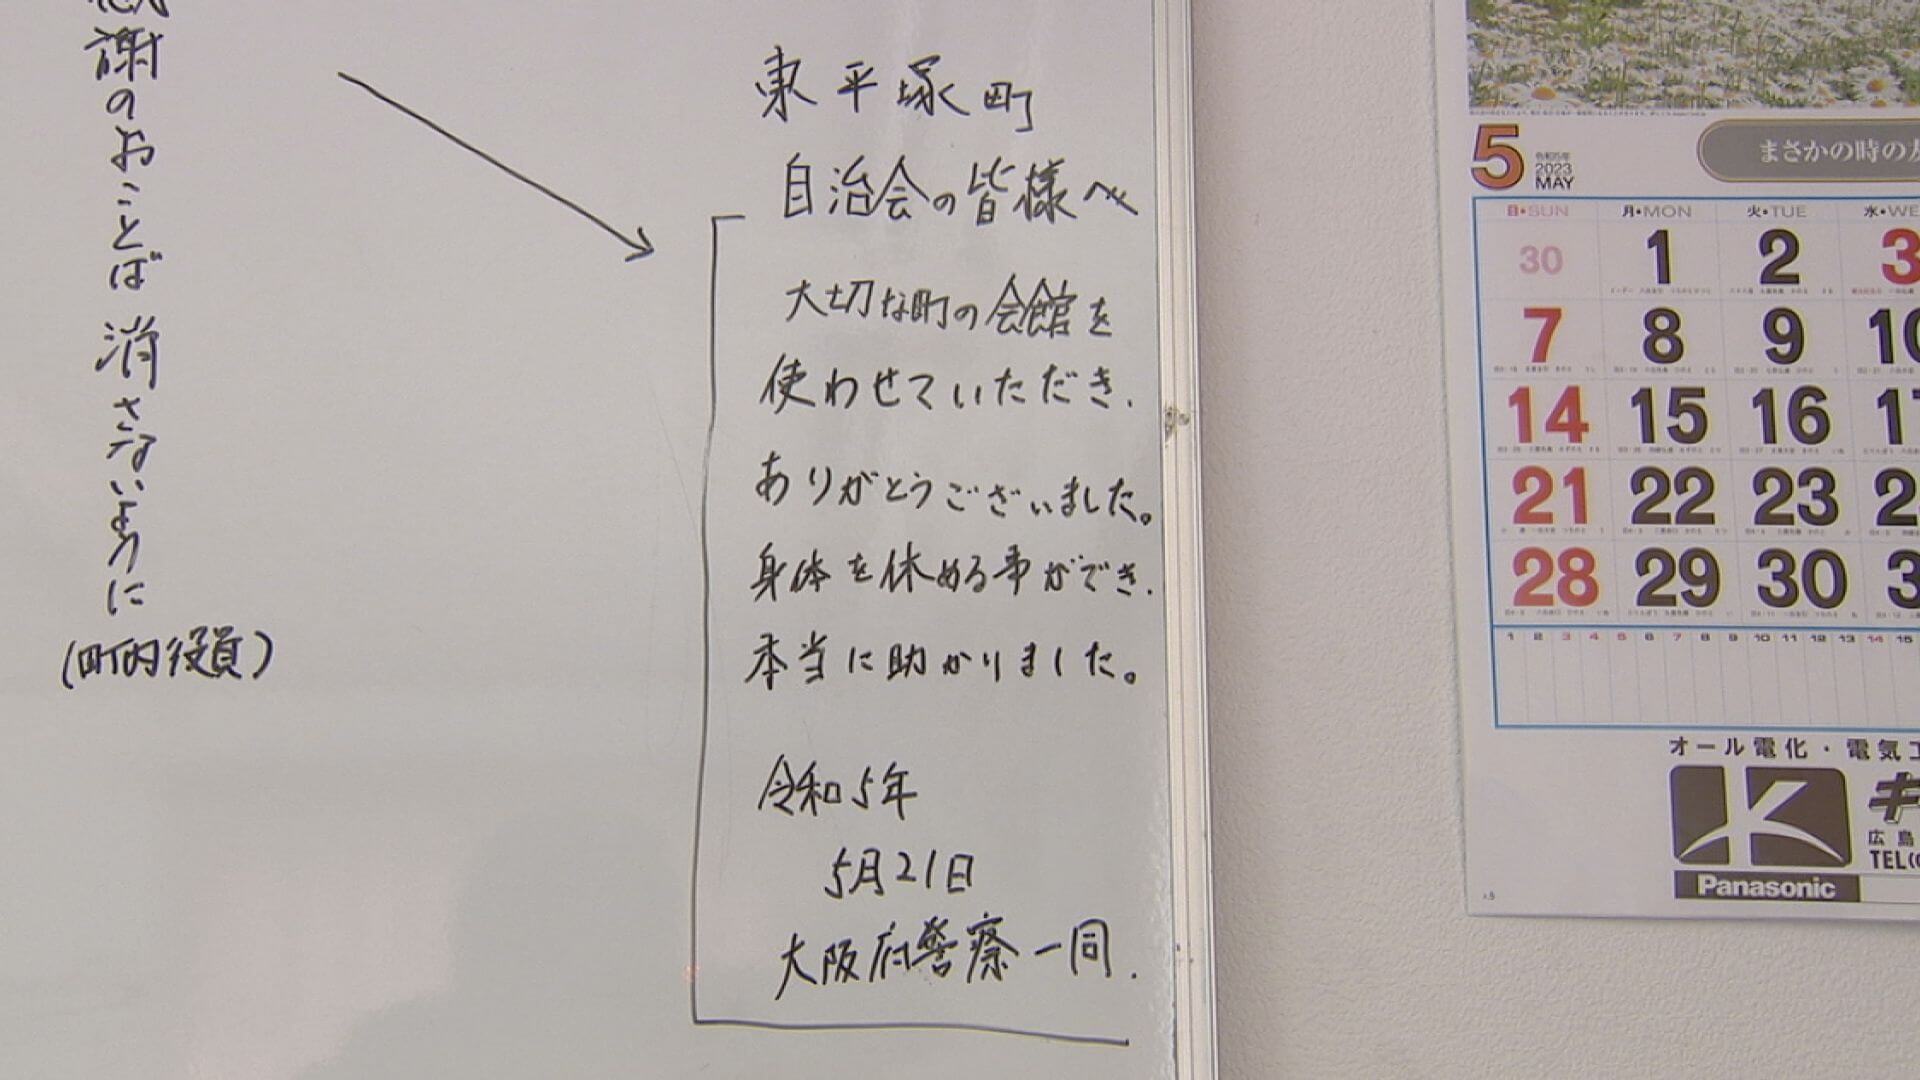 謝のおことば 消さないように
(町内役員)
東平塚町
自治会の皆様へ
大切な町の会館を
使わせていただき.
ありがとうございました。
身体を休める事ができ.
本当に助かりました。
令和5年
5月21日
大阪府警察一同.
5
令和5年
2023
MAY
まさかの時の
日・SUN 月・MON 火・TUE 水・WE
30 1 2 3
7 8 9 10
14 15 16 1
21 22 23 2
28 29 30 3
1 2 3 4 5 6 7 8 9 10 11 12 13 14 15
オール電化・電気工
K キ
広島
TEL(
Panasonic